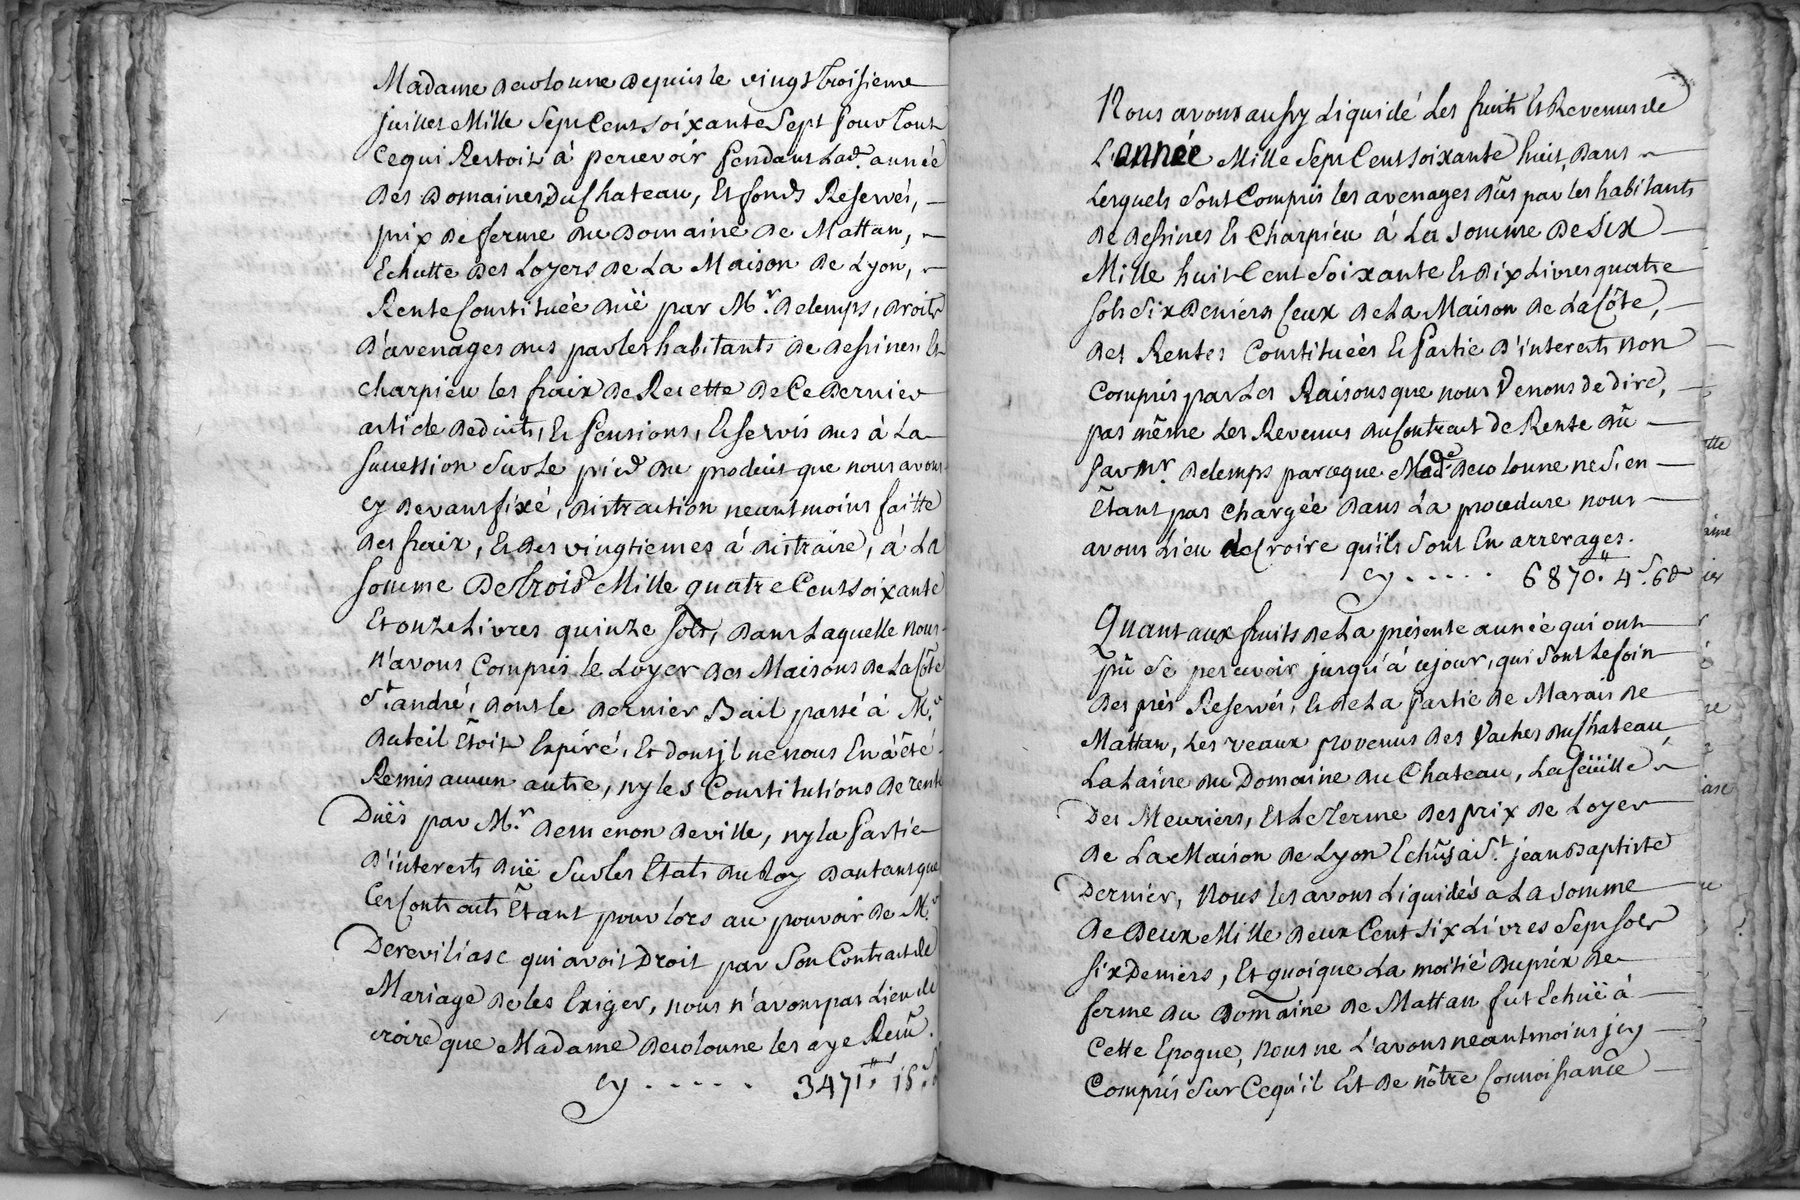 Madame decolonne depuis le vingt troisieme
juillet Mille Sept Cent soixante Sept pour tout
ce qui Restoit à percevoir pendant Lad.e année
des Domaines du Chateau, Et fonds Reservés,
prix de ferme du Domaine de Mattan,
Echutte des Loyers de La Maison de Lyon,
Rente Constituée düe par M.r delemps, droits
d'avenages dus par les habitants de dessines, Et
charpieu les fraix de Recette de Ce dernier
article deduits, Et pensions, Et servis dus à La
succession sur le pied du produit que nous avons
cy devant fixé, distraction neantmoins faitte
des fraix, Et des vingtiemes à distraire, à La
somme de trois Mille quatre Cent soixante
Et onze Livres quinze sols, dans Laquelle nous
n'avons Compris le Loyer des Maisons de La Côte
S.t andré, dont le dernier Bail passé à M.r
duteil Etoit Expiré, Et dont jl ne nous En à êté
Remis aucun autre, ny les Constitutions de rente
Düés par M.r demenon deville, ny la partie
d'interests düe sur les Etats du Roy dautant que
Ces Contracts Etant pour lors au pouvoir de M.r
Dereviliasc qui avoit Droit par son Contract de
Mariage de les Exiger, nous n'avons pas Lieu de
croire que Madame decolonne les aye Recû.
cy . . . . . 3471.tt 15.s
Nous avons aussy Liquidé Les fruits Et Revenus de
L'année Mille Sept Cent soixante huit, dans
Lesquels sont Compris les avenages dûs par les habitants
de dessines Et Charpieu à La somme de six
Mille huit Cent soixante Et dix Livres quatre
sols six deniers Ceux de La Maison de La Côte,
des Rentes Constituées Et partie d'interests non
Compris par Les Raisons que nous Venons de dire,
pas même Les Revenus du Contract de Rente dû
par M.r delemps parceque Mad.e decolonne ne s'en
Etant pas chargée dans La procedure nous
avons Lieu de Croire qu'ils sont En arrerages.
cy . . . . . 6870.tt 4.s 6 d
Quant aux fruits de La présente année qui ont
pû se percevoir jusqu'à ce jour, qui sont Le foin
des prés Reservés, Et de La partie de Marais de
Mattan, Les veaux provenus des Vaches du Chateau,
La Laine du Domaine du Chateau, La feüille
Des Meuriers, Et Le Terme des prix de Loyer
de La Maison de Lyon Echûs à S.t jean Baptiste
Dernier, Nous les avons Liquidés a La somme
de deux Mille deux Cent six Livres Sept sols
six Deniers, Et quoique La moitié du prix de
ferme du Domaine de Mattan fut Echuë à
Cette Epoque, Nous ne L'avons neantmoins jcy
Compris sur Ce qu'il Est de nôtre Connoissance